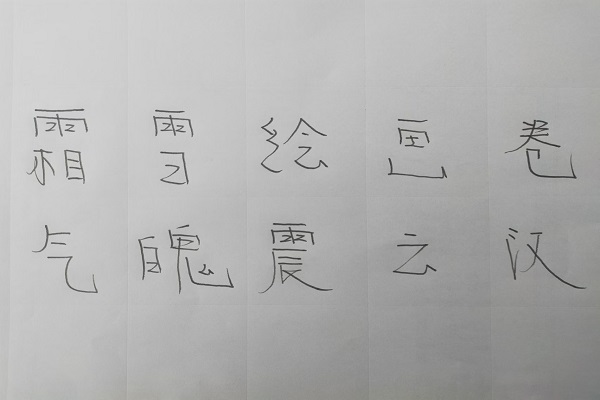 霜雪绘画卷
气魄震云汉